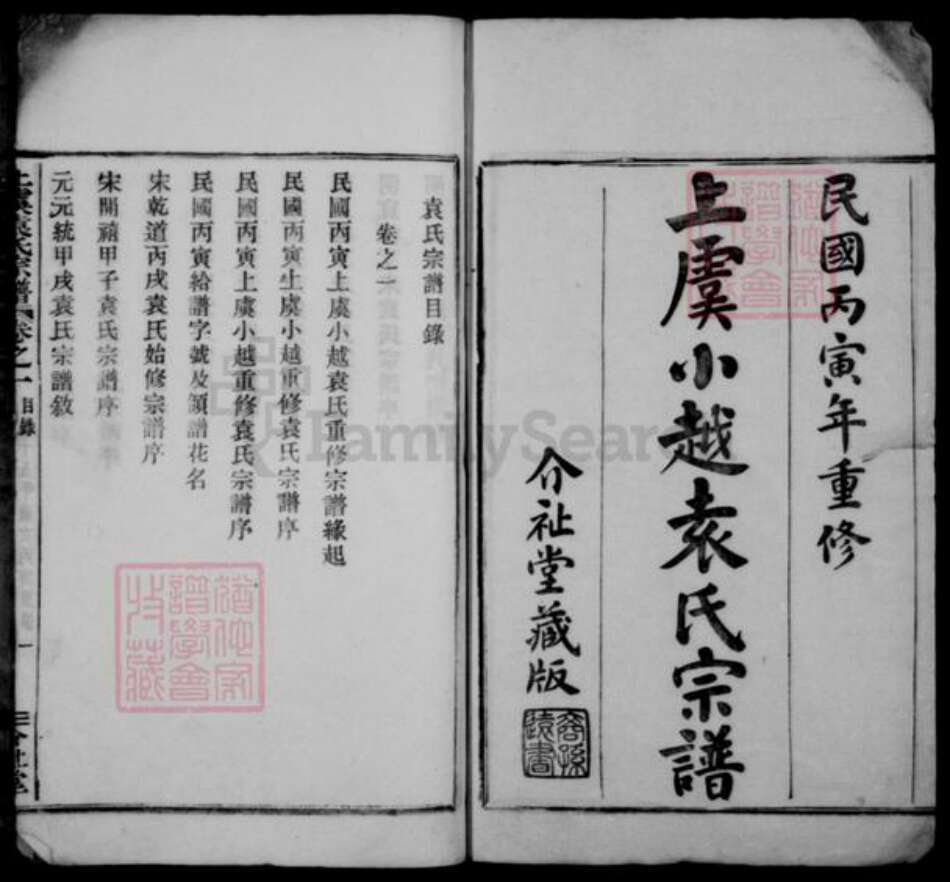 民國丙寅年重修
上虞小越袁氏宗譜
介祉堂藏版
袁氏宗譜目錄
卷之一
民國丙寅上虞小越袁氏重修宗譜緣起
民國丙寅上虞小越重修袁氏宗譜序
民國丙寅上虞小越重修袁氏宗譜序
民國丙寅給譜字號及領譜花名
宋乾道丙戌袁氏始修宗譜序
宋開禧甲子袁氏宗譜序
元元統甲戌袁氏宗譜敘
上虞袁氏宗譜 卷之一 目錄 一 介祉堂
譜學會
FamilySearch